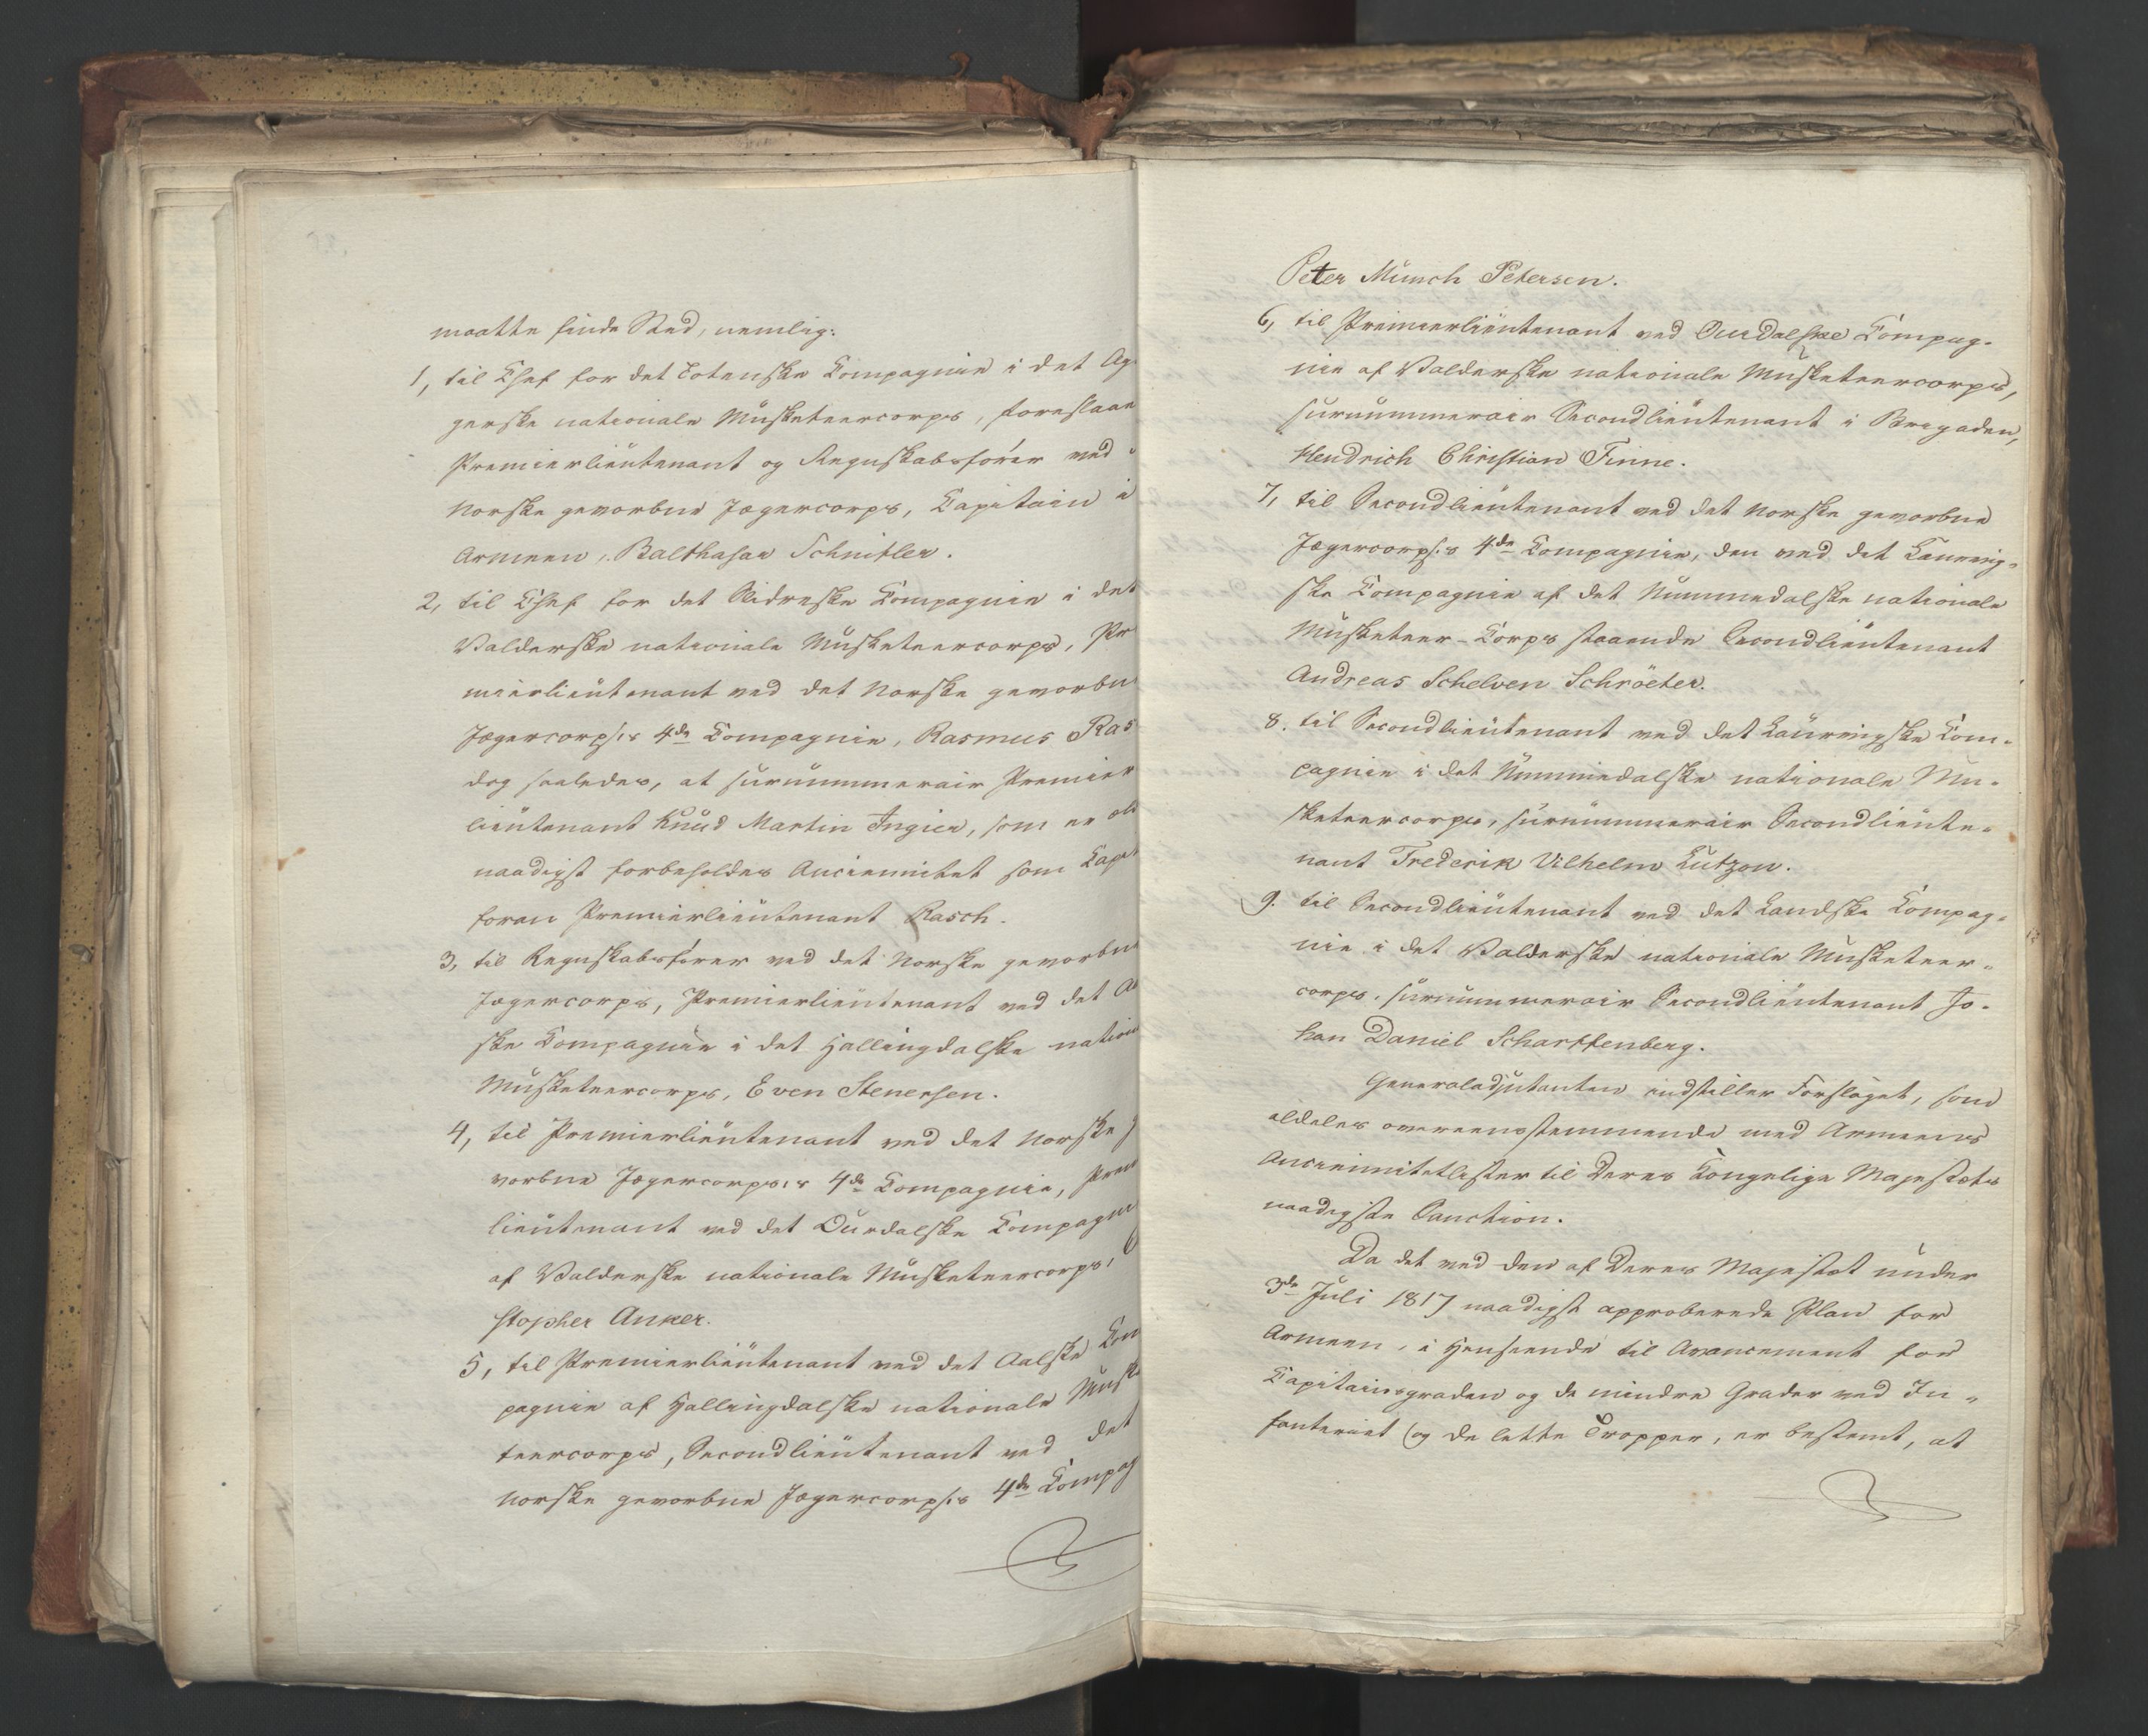 maatte finde Sted, nemlig:
1, til Chef for det Totenske Compagnie i det Ag
gerske nationale Musketeercorps, foreslaae
Premierlieutenant og Regnskabsfører ved
Norske gevorbne Jægercorps, Capitain i
Armeen, Balthasar Schnitler.
2, til Chef for det Slidreske Compagnie i det
Valderske nationale Musketeercorps, Pr
mierlieutenant ved det Norske gevorbne
Jægercorps's 4de Compagnie, Rasmus Ras
dog saaledes, at surnummerair Premier
lieutenant Knud Martin Ingier, som er all
naadigst forbeholdes Anciennitet som Capt
foran Premierlieutenant Rasch.
3, til Regnskabsfører ved det Norske gevorbne
Jægercorps, Premierlieutenant ved det A
ske Compagnie i det Hallingdalske nation
Musketeercorps, Even Stenersen.
4, til Premierlieutenant ved det Norske g
vorbne Jægercorps's 4de Compagnie, Prem
lieutenant ved det Ourdalske Compagnie
af Valderske nationale Musketeercorps,
stopher Anker.
5, til Premierlieutenant ved det Aalske Com
pagnie af Hallingdalske nationale Muske
teercorps, Secondlieutenant ved det
Norske gevorbne Jægercorps's 4de Compag
Peter Munch Petersen.
6, til Premierlieutenant ved Ourdalske Compag-
nie af Valderske nationale Musketeercorps,
surnummerair Secondlieutenant i Brigaden,
Hendrich Christian Finne.
7, til Secondlieutenant ved det Norske gevorbne
Jægercorps's 4de Compagnie, den ved det Laurvig-
ske Compagnie af det Nummedalske nationale
Musketeer-Corps staaende Secondlieutenant
Andreas Schelven Schröeter.
8. til Secondlieutenant ved det Laurvigske Com-
pagnie i det Nummedalske nationale Mu-
sketeercorps, surnummerair Secondlieute-
nant Frederik Vilhelm Lutzon.
9. til Secondlieutenant ved det Landske Compag-
nie i det Valderske nationale Musketeer-
corps, surnummerair Secondlieutenant Jo-
han Daniel Scharffenberg.
Generaladjutanten indstiller Forslaget, som
aldeles overeensstemmende med Armeens
Anciennitetlister til Deres Kongelige Majestæts
naadigste Sanction.
Da det ved den af Deres Majestæt under
3de Juli 1817 naadigst approberede Plan for
Armeen, i Henseende til Avancement for
Capitainsgraden og de mindre Grader ved In-
fanteriet og de lette Tropper, er bestemt, at